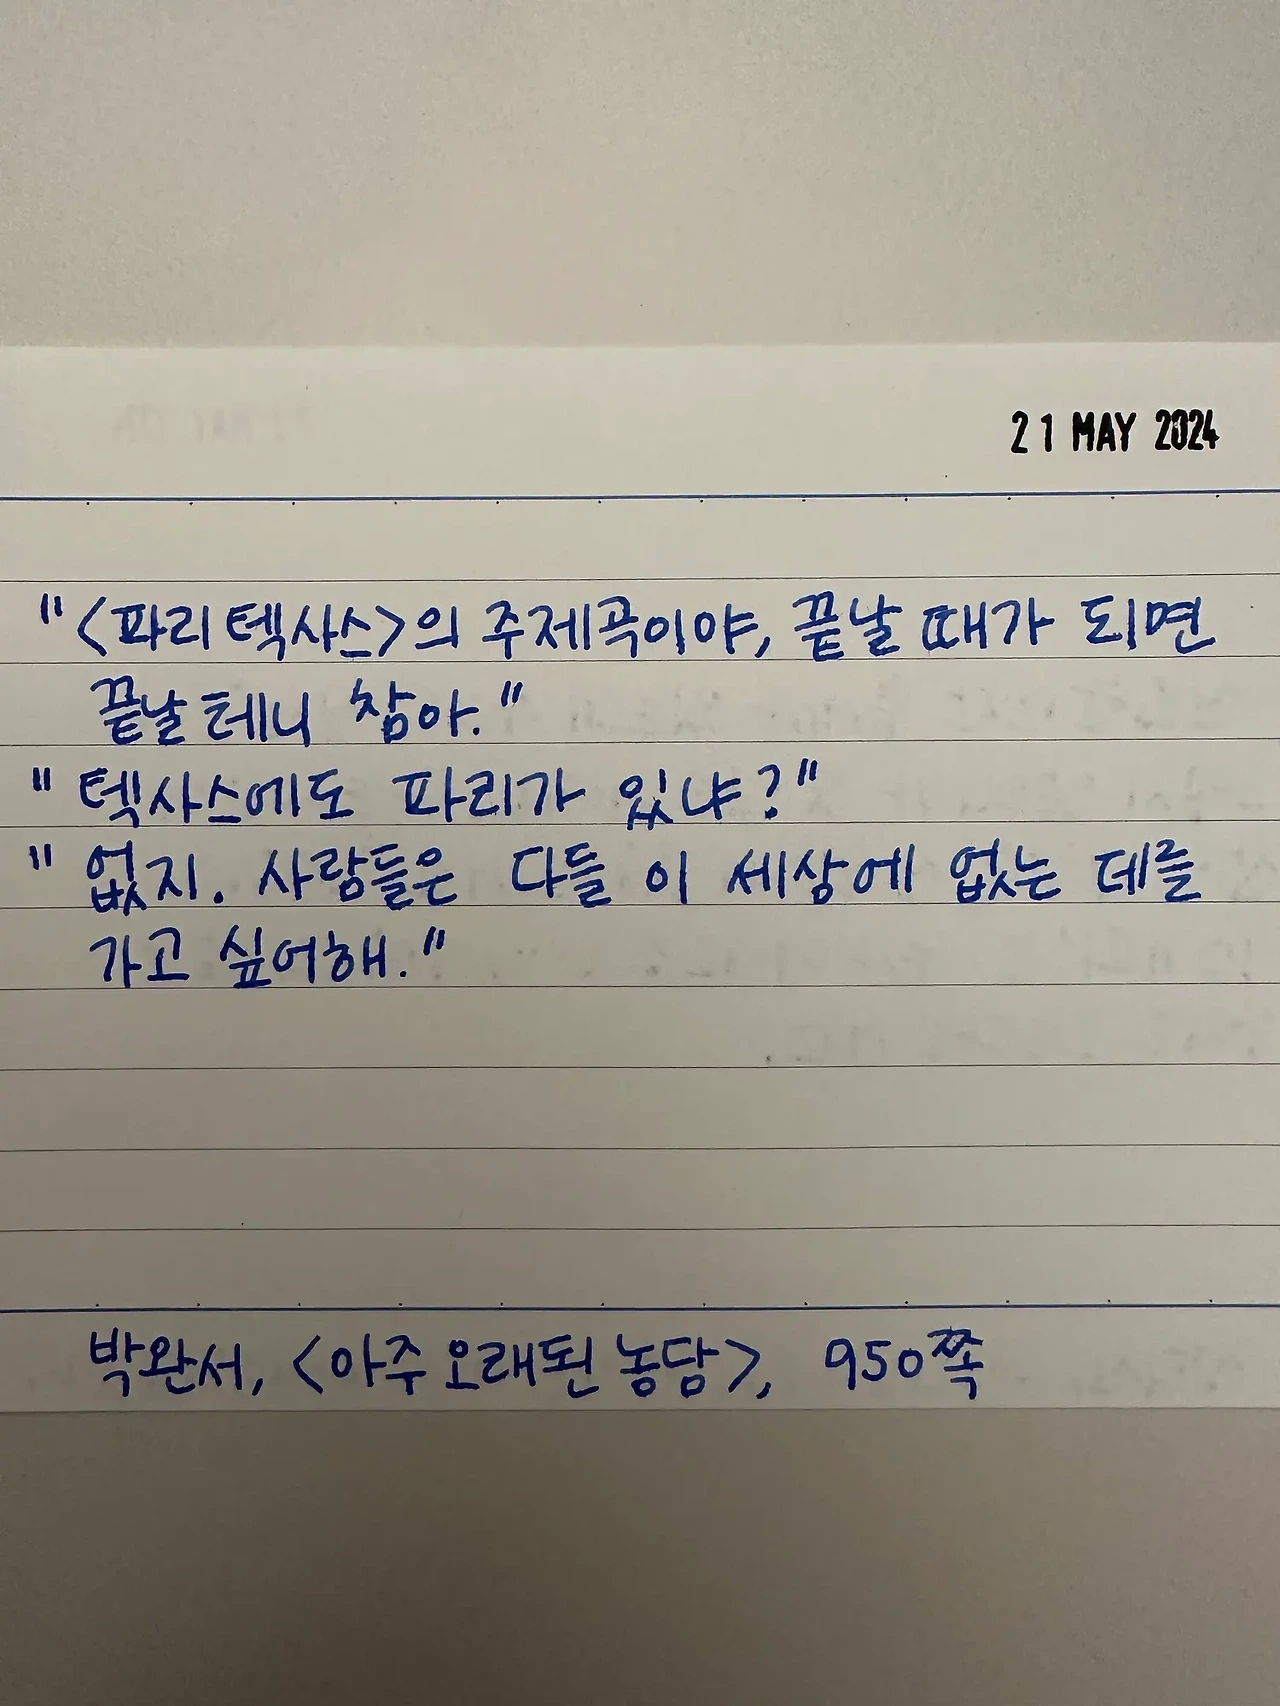 21 MAY 2024
"<파리 텍사스>의 주제곡이야, 끝날 때가 되면
끝날 테니 참아."
"텍사스에도 파리가 있냐?"
"없지. 사람들은 다들 이 세상에 없는 데를
가고 싶어해."
박완서, <아주 오래된 농담>, 950쪽